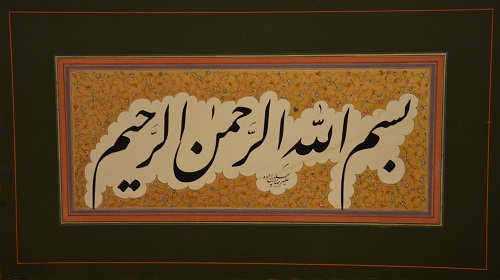 بسم الله الرحمٰن الرَّحیم